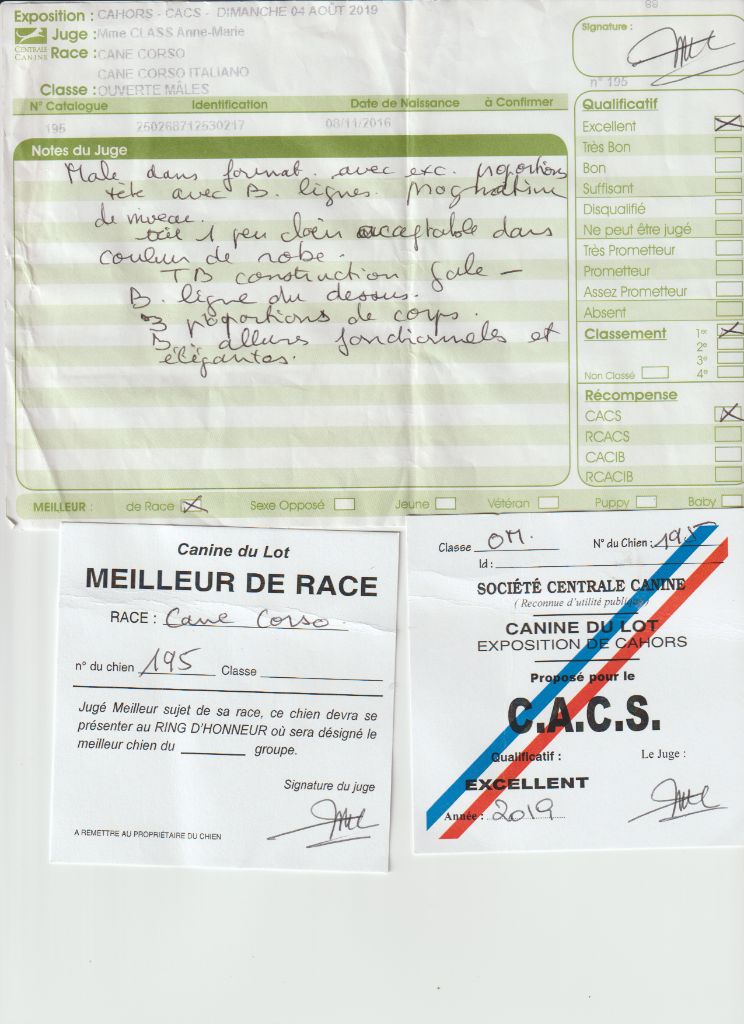 88
Exposition : CAHORS - CACS - DIMANCHE 04 AOÛT 2019
Juge : Mme CLASS Anne-Marie
CENTRALE CANINE
Race : CANE CORSO
CANE CORSO ITALIANO
Classe : OUVERTE MÂLES
Signature :
n° 195
N° Catalogue Identification Date de Naissance à Confirmer
195 250268712530217 08/11/2016
Notes du Juge
Male dans format. avec exc. proportions
tête avec B. lignes. prognathisme
de niveau.
1 peu clair acceptable dans
couleur de robe.
TB construction
B. ligne du dessus.
B proportions de corps.
B. allures fonctionnels et
élégantes.
Qualificatif
Excellent X
Très Bon
Bon
Suffisant
Disqualifié
Ne peut être jugé
Très Prometteur
Prometteur
Assez Prometteur
Absent
Classement 1er X
2e
3e
Non Classé 4e
Récompense
CACS X
RCACS
CACIB
RCACIB
MEILLEUR : de Race X Sexe Opposé Jeune Vétéran Puppy Baby
Canine du Lot
MEILLEUR DE RACE
RACE : Cane Corso
n° du chien 195 Classe
Jugé Meilleur sujet de sa race, ce chien devra se
présenter au RING D'HONNEUR où sera désigné le
meilleur chien du groupe.
Signature du juge
A REMETTRE AU PROPRIÉTAIRE DU CHIEN
Classe OM. N° du Chien : 195
Id :
SOCIÉTÉ CENTRALE CANINE
( Reconnue d'utilité publique)
CANINE DU LOT
EXPOSITION DE CAHORS
Proposé pour le
C.A.C.S.
Qualificatif : Le Juge :
EXCELLENT
Année : 2019